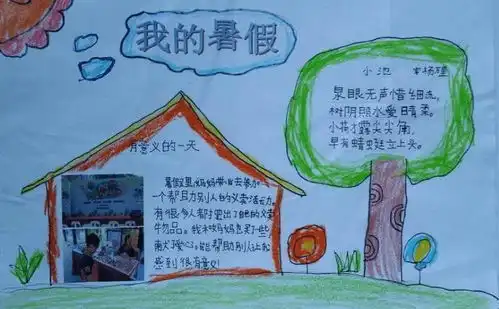 我的暑假
有意义的一天
暑假里,妈妈带我去参加
一个帮助别人的义卖活动。
有很多人都拿出了自己的义卖
物品。我和妈妈也买了一些
献了爱心,能帮助别人让我
感到很有意义!
小池
泉眼无声惜细流,
树阴照水爱晴柔。
小荷才露尖尖角,
早有蜻蜓立上头。